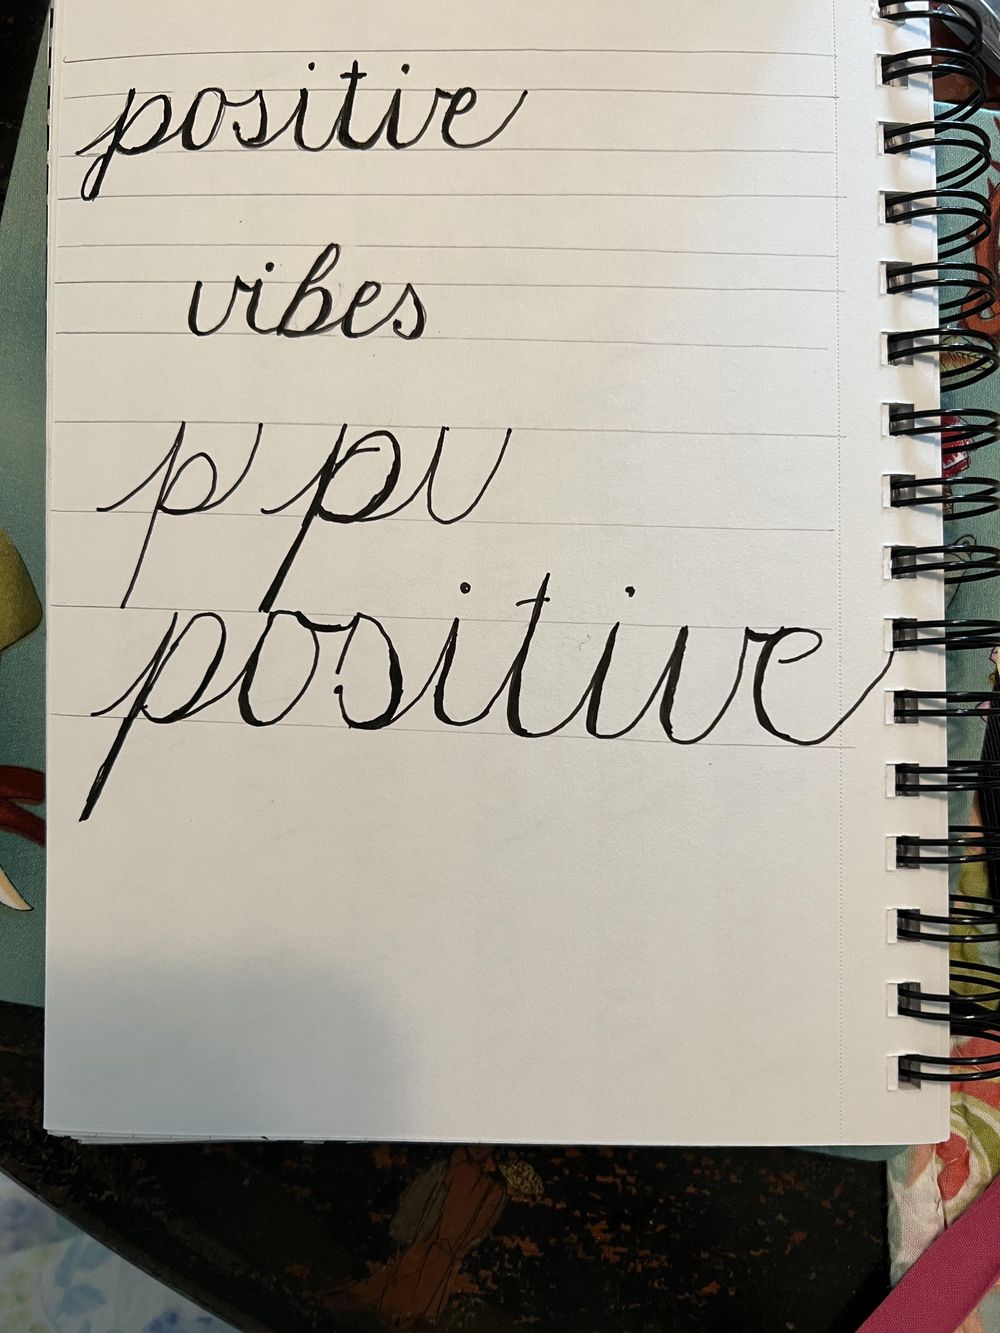 positive
vibes
p p v
positive